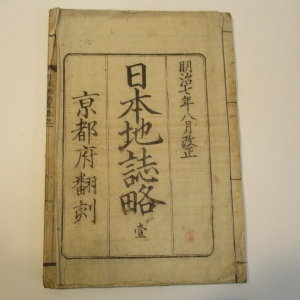 明治七年八月改正
日本地誌略 壹
京都府翻刻